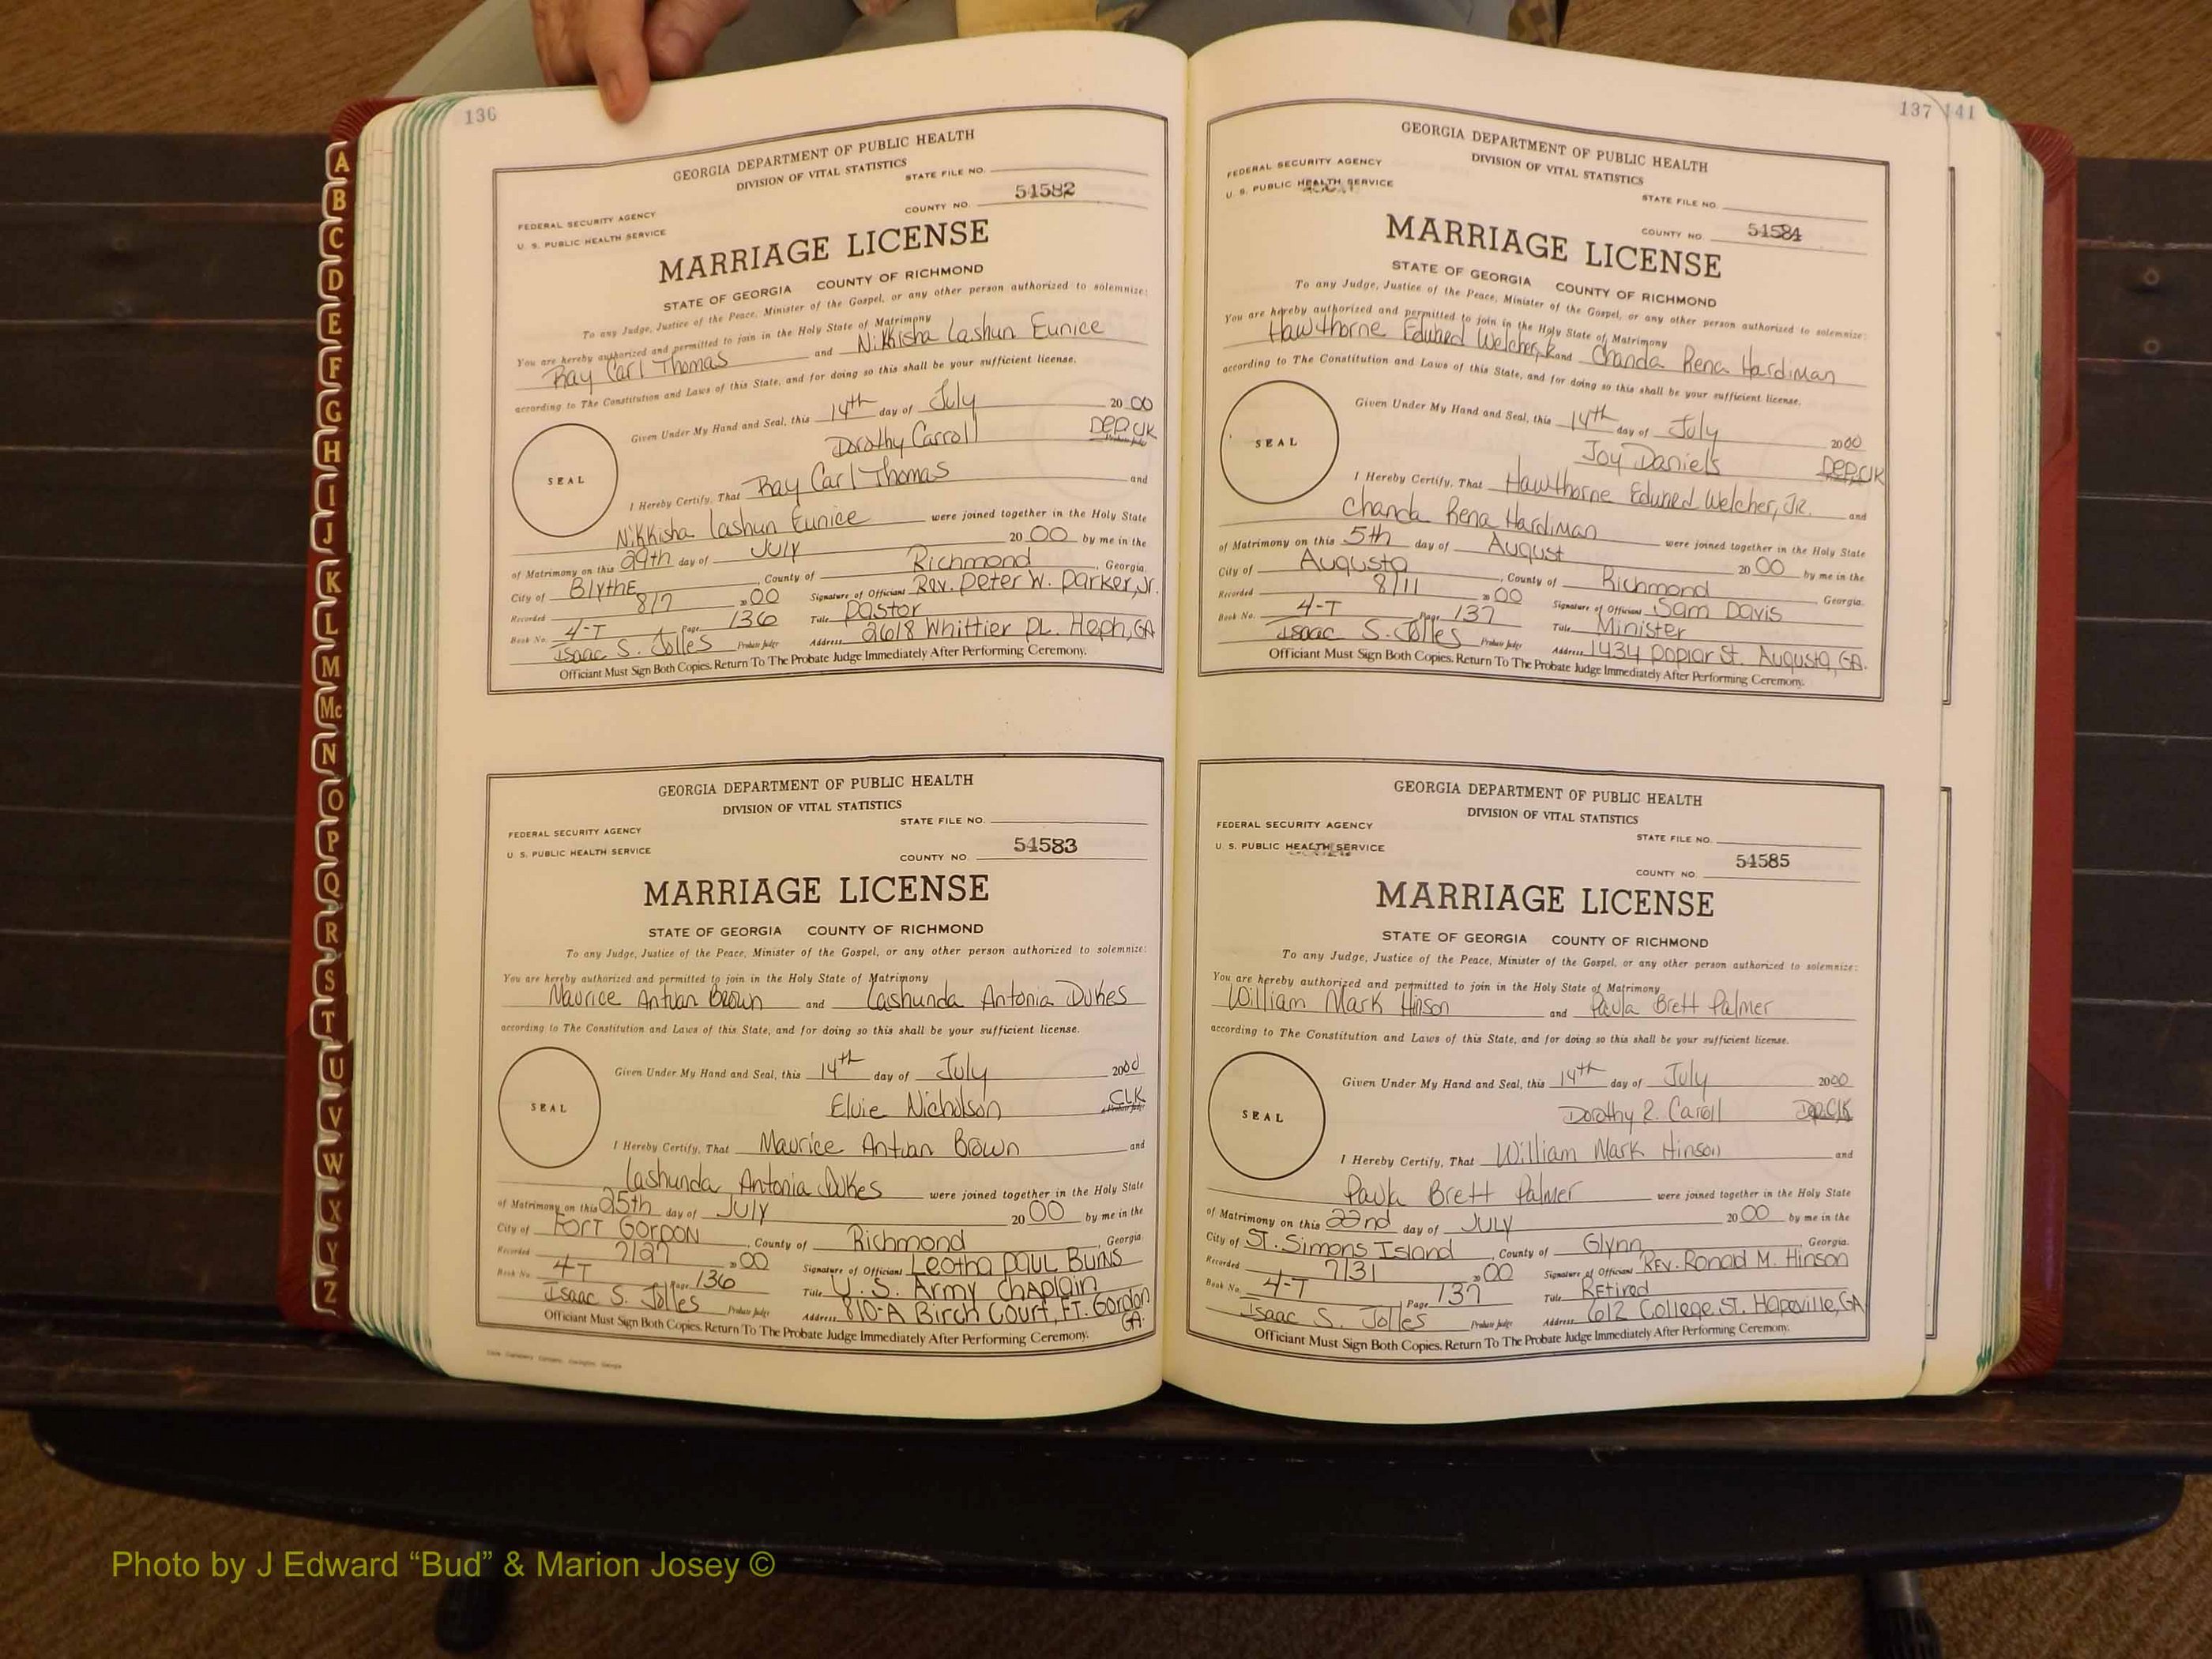 136
GEORGIA DEPARTMENT OF PUBLIC HEALTH
DIVISION OF VITAL STATISTICS
STATE FILE NO.
FEDERAL SECURITY AGENCY
U. S. PUBLIC HEALTH SERVICE
COUNTY NO. 54582
MARRIAGE LICENSE
STATE OF GEORGIA COUNTY OF RICHMOND
To any Judge, Justice of the Peace, Minister of the Gospel, or any other person authorized to solemnize:
You are hereby authorized and permitted to join in the Holy State of Matrimony
Ray Carl Thomas and Nikkisha Lashun Eunice
according to The Constitution and Laws of this State, and for doing so this shall be your sufficient license.
Given Under My Hand and Seal, this 14th day of July 2000
Dorothy Carroll DEP.CLK
SEAL
I Hereby Certify, That Ray Carl Thomas and
Nikkisha Lashun Eunice were joined together in the Holy State
of Matrimony on this 29th day of July 2000 by me in the
City of BlythE, County of Richmond, Georgia.
Recorded 8/7 2000 Signature of Officiant Rev. Peter W. Parker, Jr.
Book No. 4-T Page 136 Title Pastor
Isaac S. Jolles Probate Judge Address 2618 Whittier PL. Heph, GA
Officiant Must Sign Both Copies. Return To The Probate Judge Immediately After Performing Ceremony.
GEORGIA DEPARTMENT OF PUBLIC HEALTH
DIVISION OF VITAL STATISTICS
STATE FILE NO.
FEDERAL SECURITY AGENCY
U. S. PUBLIC HEALTH SERVICE
COUNTY NO. 54583
MARRIAGE LICENSE
STATE OF GEORGIA COUNTY OF RICHMOND
To any Judge, Justice of the Peace, Minister of the Gospel, or any other person authorized to solemnize:
You are hereby authorized and permitted to join in the Holy State of Matrimony
Maurice Antwan Brown and Lashunda Antonia Dukes
according to The Constitution and Laws of this State, and for doing so this shall be your sufficient license.
Given Under My Hand and Seal, this 14th day of July 2000
Elvie Nicholson CLK
SEAL
I Hereby Certify, That Maurice Antwan Brown and
Lashunda Antonia Dukes were joined together in the Holy State
of Matrimony on this 25th day of July 2000 by me in the
City of Fort Gordon, County of Richmond, Georgia.
Recorded 7/27 2000 Signature of Officiant Leotha Paul Burns
Book No. 4-T Page 136 Title U. S. Army Chaplain
Isaac S. Jolles Probate Judge Address 810-A Birch Court, FT. Gordon GA.
Officiant Must Sign Both Copies. Return To The Probate Judge Immediately After Performing Ceremony.
137
GEORGIA DEPARTMENT OF PUBLIC HEALTH
DIVISION OF VITAL STATISTICS
FEDERAL SECURITY AGENCY
U. S. PUBLIC HEALTH SERVICE
STATE FILE NO.
COUNTY NO. 54584
MARRIAGE LICENSE
STATE OF GEORGIA COUNTY OF RICHMOND
To any Judge, Justice of the Peace, Minister of the Gospel, or any other person authorized to solemnize:
You are hereby authorized and permitted to join in the Holy State of Matrimony
Hawthorne Edward Welcher, Jr. and Chanda Rena Hardiman
according to The Constitution and Laws of this State, and for doing so this shall be your sufficient license.
Given Under My Hand and Seal, this 14th day of July 2000
Joy Daniels DEP.CLK
SEAL
I Hereby Certify, That Hawthorne Edward Welcher, Jr. and
Chanda Rena Hardiman were joined together in the Holy State
of Matrimony on this 5th day of August 2000 by me in the
City of Augusta, County of Richmond, Georgia.
Recorded 8/11 2000 Signature of Officiant Sam Davis
Book No. 4-T Page 137 Title Minister
Isaac S. Jolles Probate Judge Address 1434 Poplar St. Augusta, GA.
Officiant Must Sign Both Copies. Return To The Probate Judge Immediately After Performing Ceremony.
GEORGIA DEPARTMENT OF PUBLIC HEALTH
DIVISION OF VITAL STATISTICS
FEDERAL SECURITY AGENCY
U. S. PUBLIC HEALTH SERVICE
STATE FILE NO.
COUNTY NO. 54585
MARRIAGE LICENSE
STATE OF GEORGIA COUNTY OF RICHMOND
To any Judge, Justice of the Peace, Minister of the Gospel, or any other person authorized to solemnize:
You are hereby authorized and permitted to join in the Holy State of Matrimony
William Mark Hinson and Paula Brett Palmer
according to The Constitution and Laws of this State, and for doing so this shall be your sufficient license.
Given Under My Hand and Seal, this 14th day of July 2000
Dorothy R. Carroll Dep.Clk
SEAL
I Hereby Certify, That William Mark Hinson and
Paula Brett Palmer were joined together in the Holy State
of Matrimony on this 22nd day of July 2000 by me in the
City of St. Simons Island, County of Glynn, Georgia.
Recorded 7/31 2000 Signature of Officiant Rev. Ronad M. Hinson
Book No. 4-T Page 137 Title REtired
Isaac S. Jolles Probate Judge Address 612 College St. Hapeville, GA
Officiant Must Sign Both Copies. Return To The Probate Judge Immediately After Performing Ceremony.
141
A
B
C
D
E
F
G
H
I
J
K
L
M
Mc
N
O
P
Q
R
S
T
U
V
W
X
Y
Z
Photo by J Edward “Bud” & Marion Josey ©